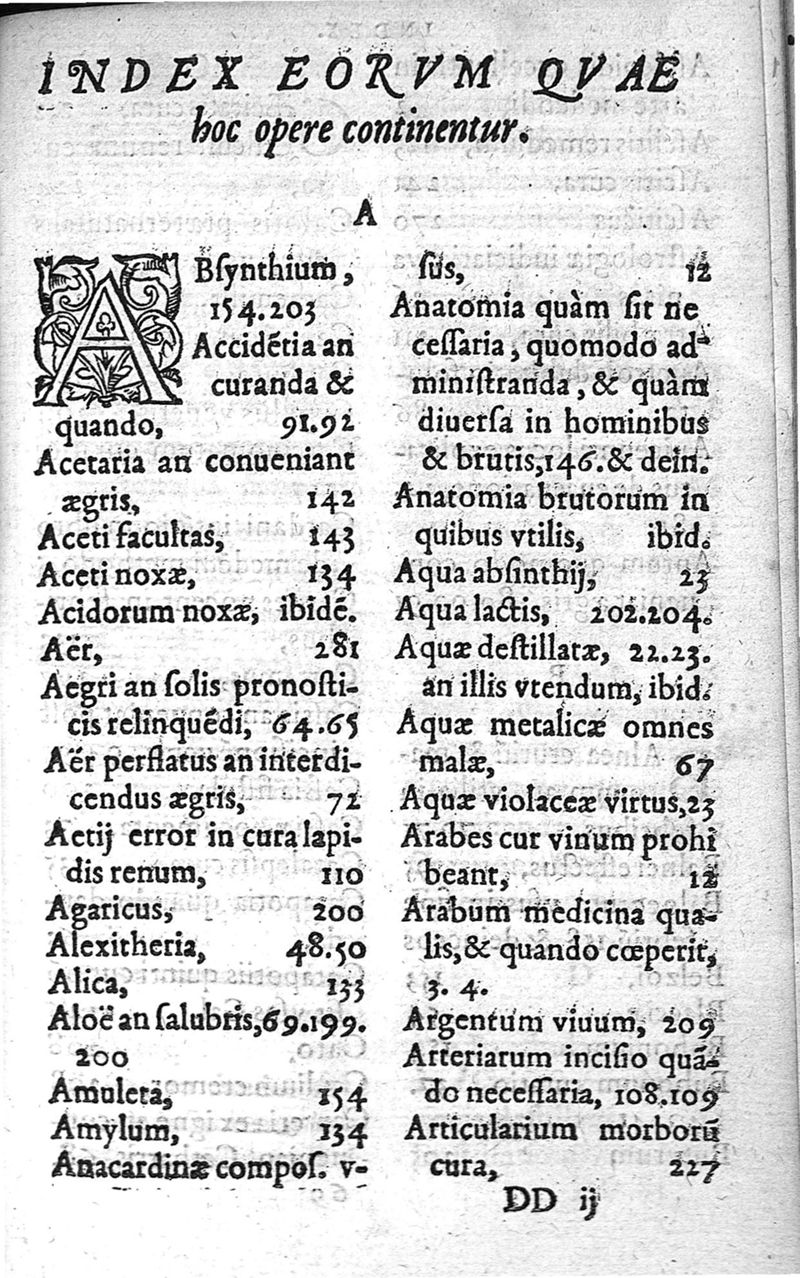 INDEX EORVM QVAE
hoc opere continentur.
A
ABſynthium,
154.203
Accidẽtia an
curanda &
quando, 91.92
Acetaria an conueniant
ægris, 142
Aceti facultas, 143
Aceti noxæ, 134
Acidorum noxæ, ibidẽ.
Aër, 281
Aegri an ſolis pronoſti-
cis relinquẽdi, 64.65
Aër perflatus an interdi-
cendus ægris, 72
Aetij error in cura lapi-
dis renum, 110
Agaricus, 200
Alexitheria, 48.50
Alica, 133
Aloë an ſalubris, 69.199.
200
Amuleta, 154
Amylum, 134
Anacardinæ compoſ. v-
ſus, 12
Anatomia quàm ſit ne
ceſſaria, quomodo ad-
miniſtranda, & quàm
diuerſa in hominibus
& brutis, 146. & dein.
Anatomia brutorum in
quibus vtilis, ibid.
Aqua abſinthij, 23
Aqua lactis, 202.204.
Aquæ deſtillatæ, 22.23.
an illis vtendum, ibid.
Aquæ metalicæ omnes
malæ, 67
Aquæ violaceæ virtus, 23
Arabes cur vinum prohi
beant, 12
Arabum medicina qua-
lis, & quando cœperit,
3. 4.
Argentum viuum, 209
Arteriarum inciſio quã-
do neceſſaria, 108.109
Articularium morborũ
cura, 227
DD ij